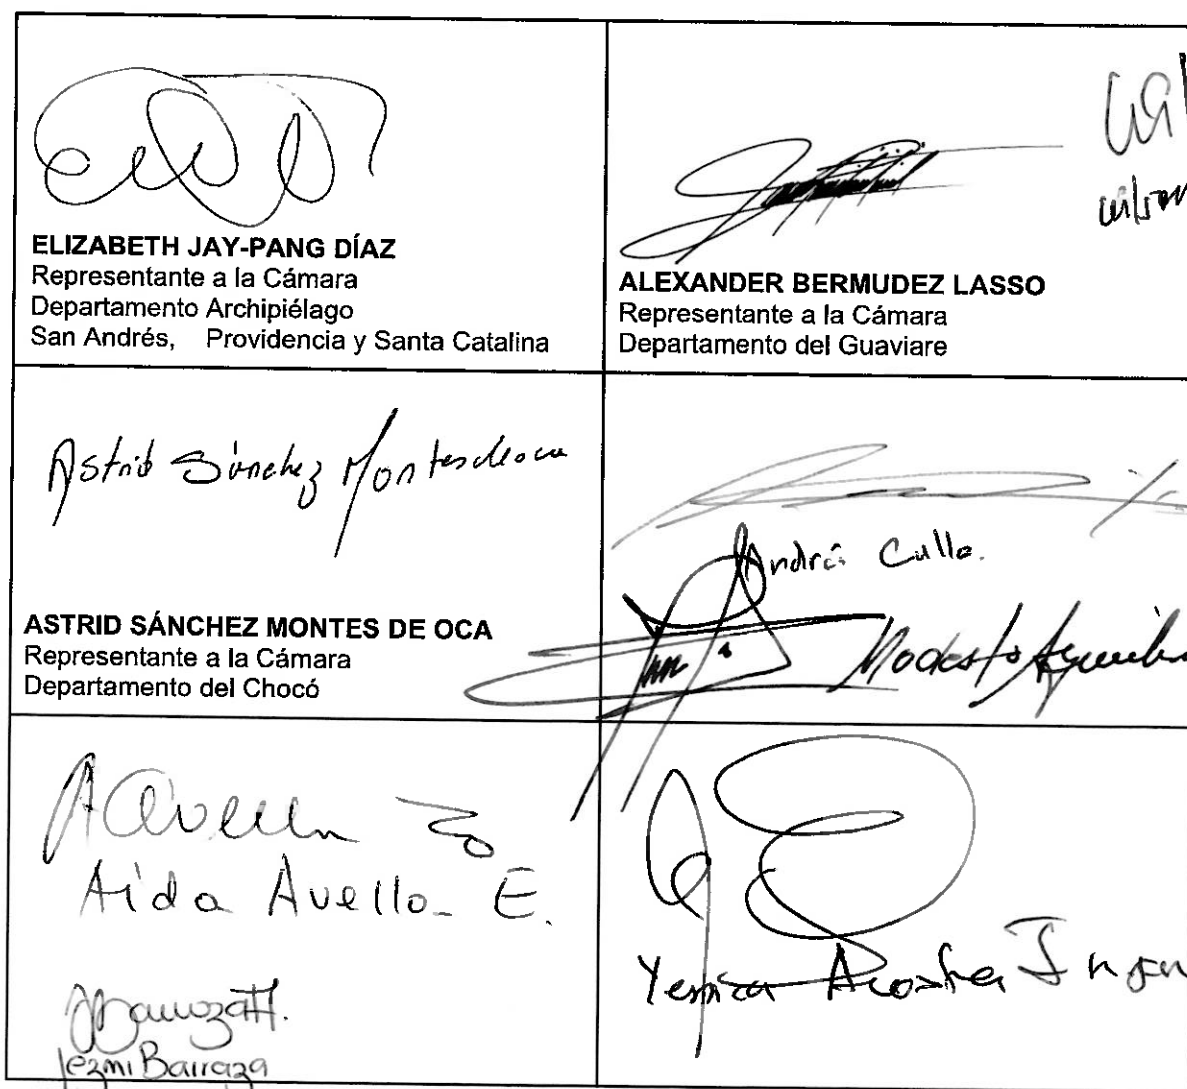 ELIZABETH JAY-PANG DÍAZ
Representante a la Cámara
Departamento Archipiélago
San Andrés, Providencia y Santa Catalina
ALEXANDER BERMUDEZ LASSO
Representante a la Cámara
Departamento del Guaviare
Astrid Sánchez Montesdeoca
ASTRID SÁNCHEZ MONTES DE OCA
Representante a la Cámara
Departamento del Chocó
Modesto Aguilera
Aida Avella E.
Yezmi Barraza
Yesica Acosta